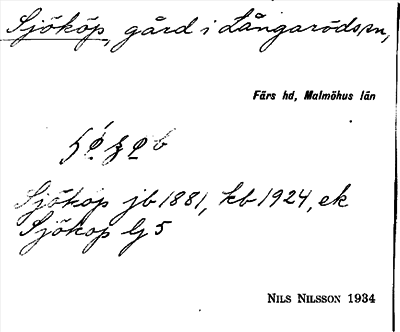 Sjököp, gård i Långaröds sn,
Färs hd, Malmöhus län
Sjököp jb 1881, kb 1924, ek
Sjököp lj 5
NILS NILSSON 1934